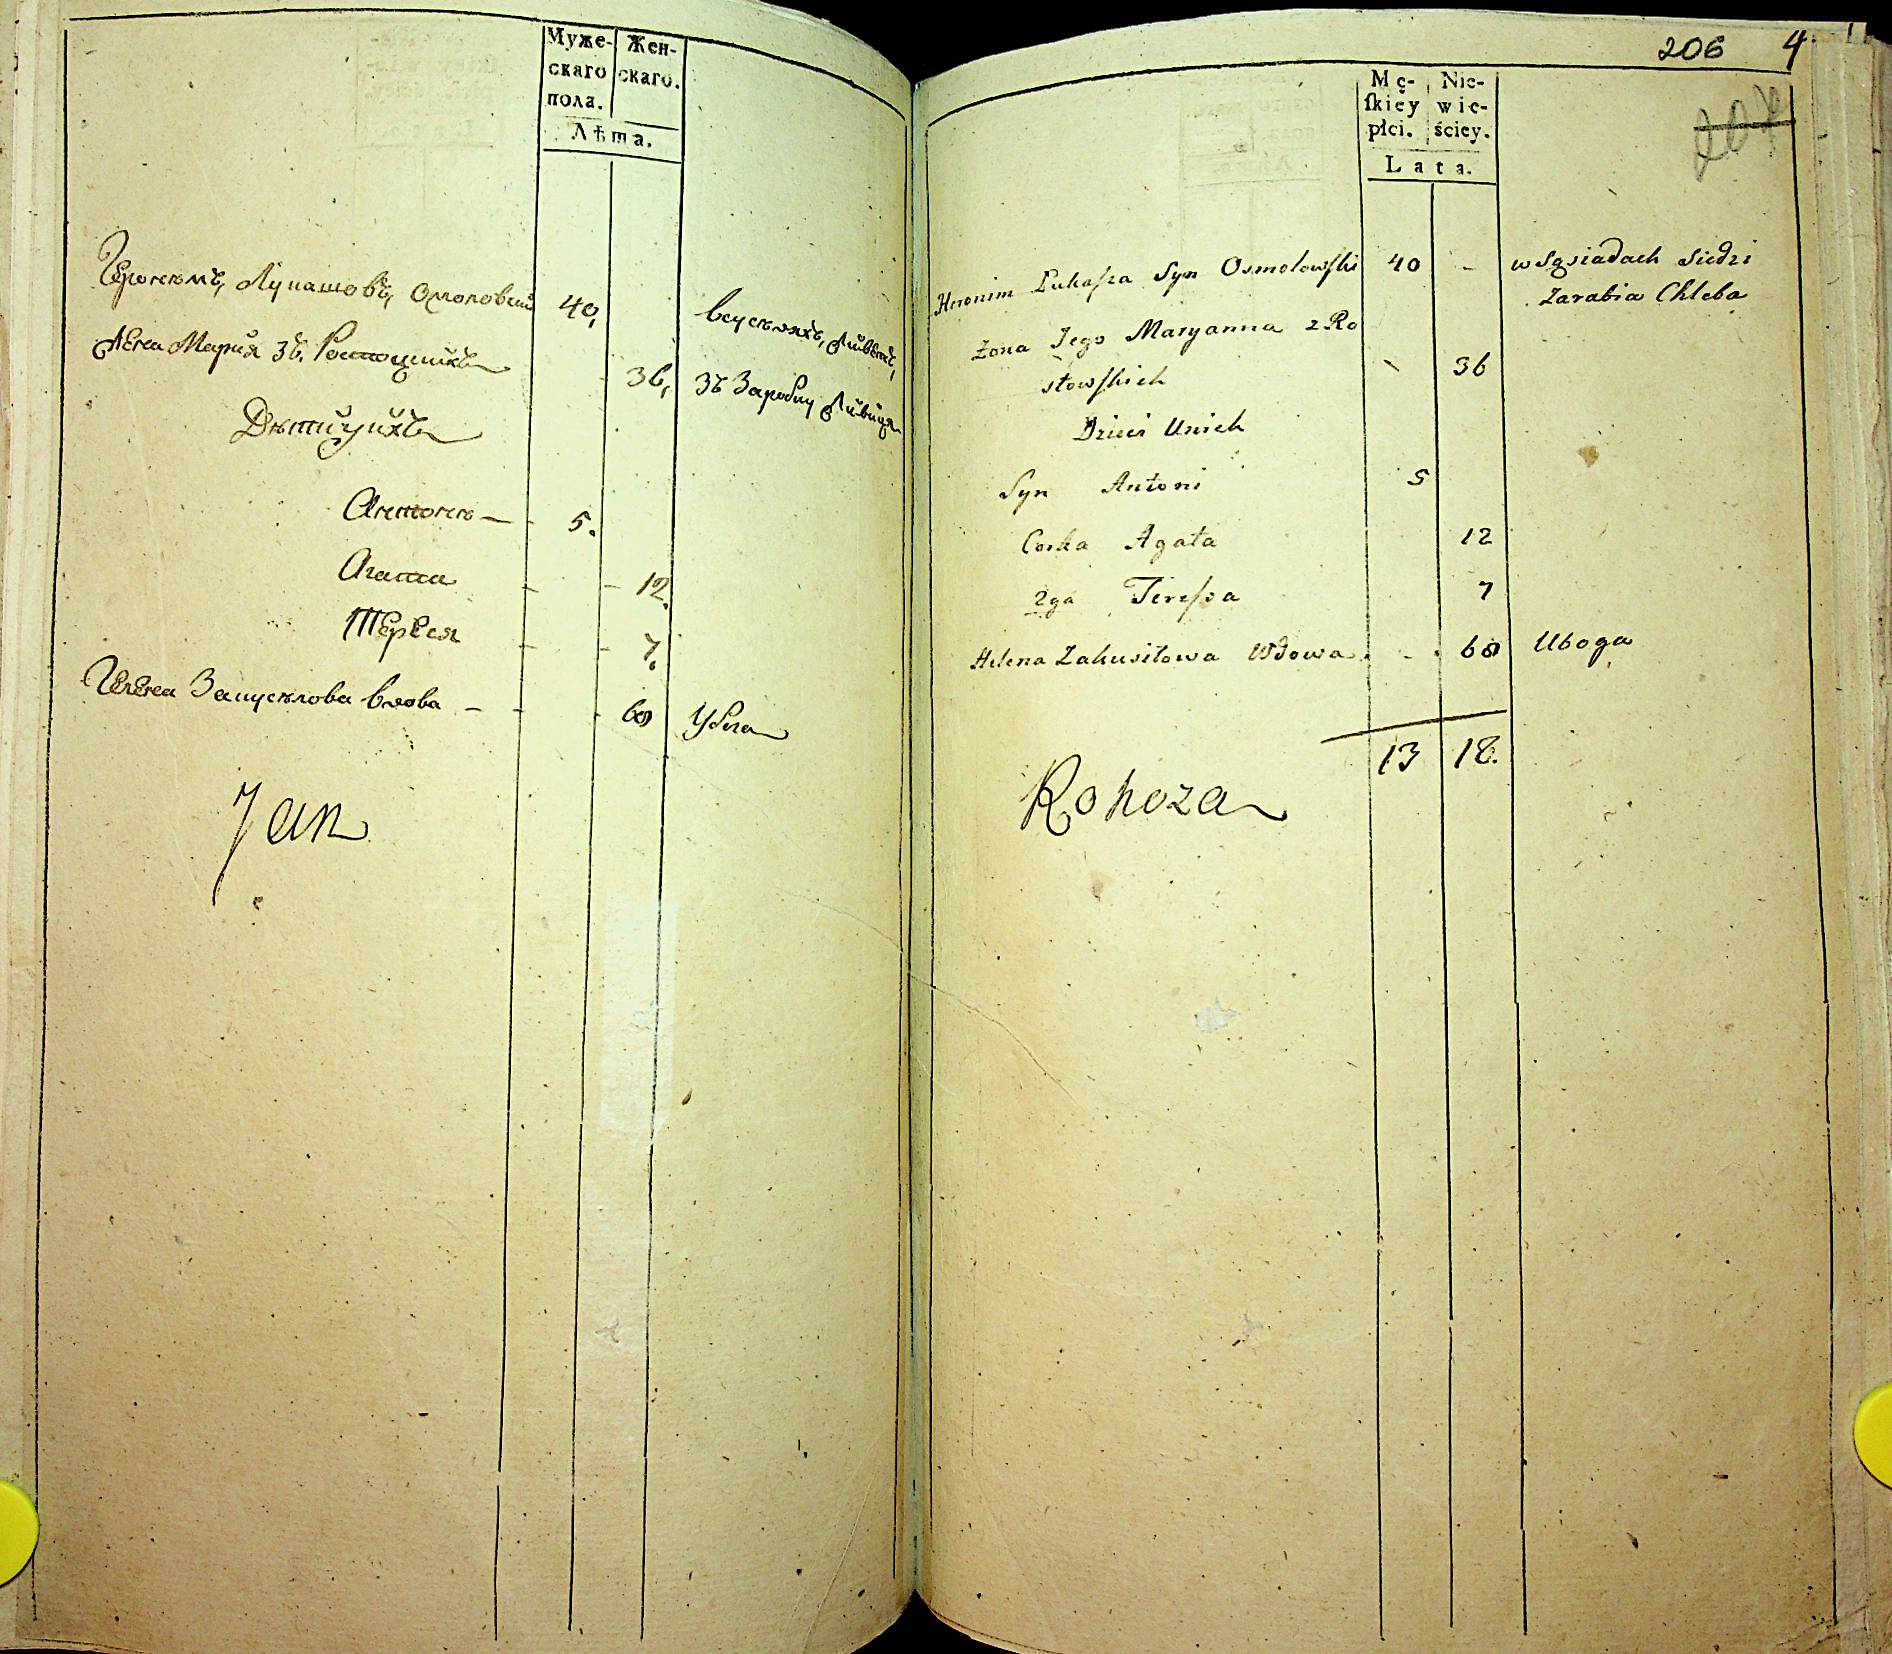 Муже-
скаго
пола.
Жен-
скаго.
Лѣта.
Іеронимъ, Лукашовъ, Омоловский 40,
Жена Мария зъ 36,
Дѣтиихъ
Антони — 5.
Агата - - 12.
Тереся - - 7.
Елена Закусилова вдова - - 60 Убога
Jan
206 4
207
Mę-
ſkiey
płci.
Nie-
wie-
ściey.
Lata.
Heronim Łukaſza Syn Osmolowſki 40 - w Sąsiadach Siedzi
Zarabia Chleba
Żona Jego Maryanna z Ro
słowſkich - 36
Dzieci Unich
Syn Antoni 5
Corka Agata 12
2ga Tereſsa 7
Helena Zakusiłowa Wdowa - - 60 Uboga
13 18.
Rohoza